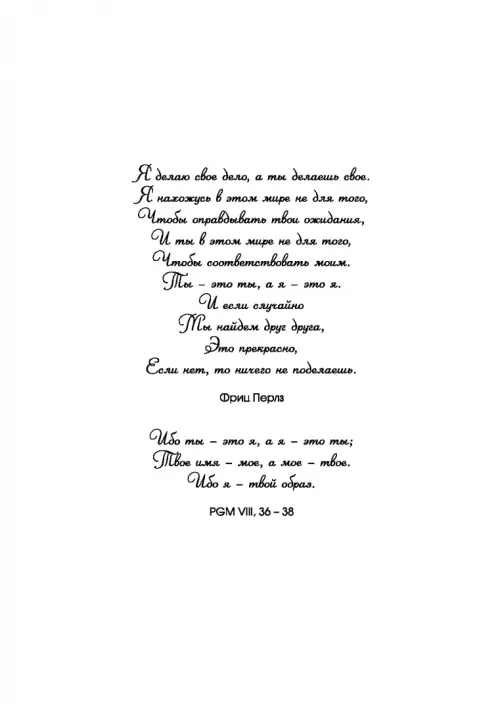 Я делаю свое дело, а ты делаешь свое.
Я нахожусь в этом мире не для того,
Чтобы оправдывать твои ожидания,
И ты в этом мире не для того,
Чтобы соответствовать моим.
Ты – это ты, а я – это я.
И если случайно
Мы найдем друг друга,
Это прекрасно,
Если нет, то ничего не поделаешь.
Фриц Перлз
Ибо ты – это я, а я – это ты;
Твое имя – мое, а мое – твое.
Ибо я – твой образ.
PGM VIII, 36 – 38